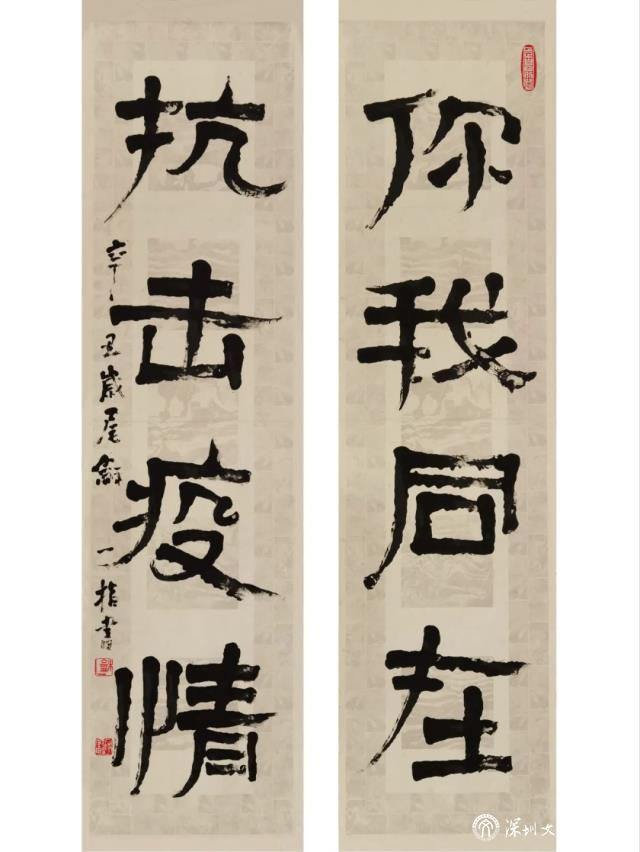 你我同在
抗击疫情
辛丑岁尾
一指书
深圳文